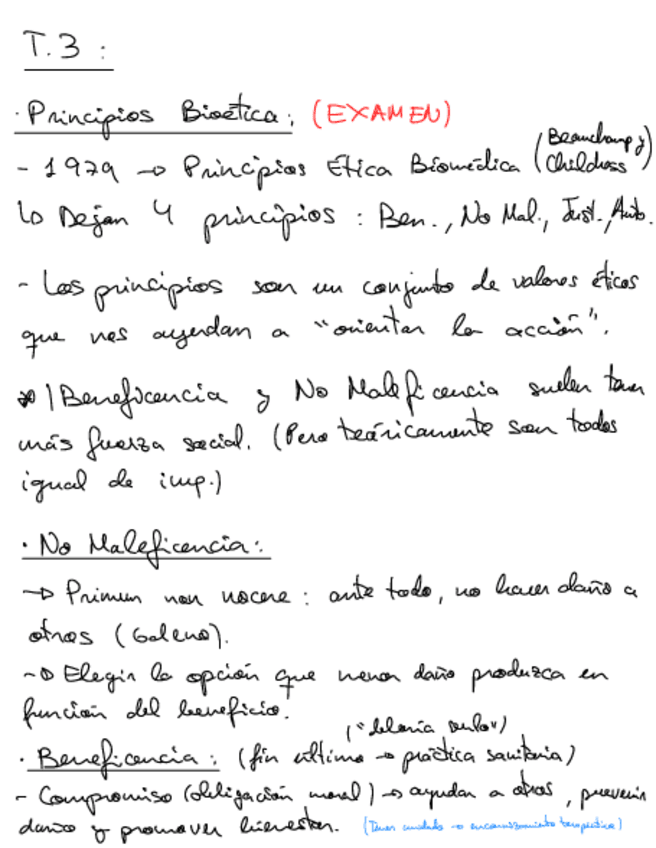 T.3 :
· Principios Bioética: (EXAMEN)
- 1979 → Principios Ética Biomédica (Beauchamp y Childress)
↳ Dejan 4 principios : Ben., No Mal., Just., Auto.
- Los principios son un conjunto de valores éticos
que nos ayudan a "orientar la acción".
* | Beneficencia y No Maleficencia suelen tener
más fuerza social. (Pero teóricamente son todos
igual de imp.)
· No Maleficencia:
→ Primum non nocere : ante todo, no hacer daño a
otros (Galeno).
→ Elegir la opción que menor daño produzca en
función del beneficio.
("debería serlo")
· Beneficencia : (fin último → práctica sanitaria)
- Compromiso (obligación moral) → ayudar a otros, prevenir
daño y promover bienestar. (Tener cuidado → encarnizamiento terapéutico)